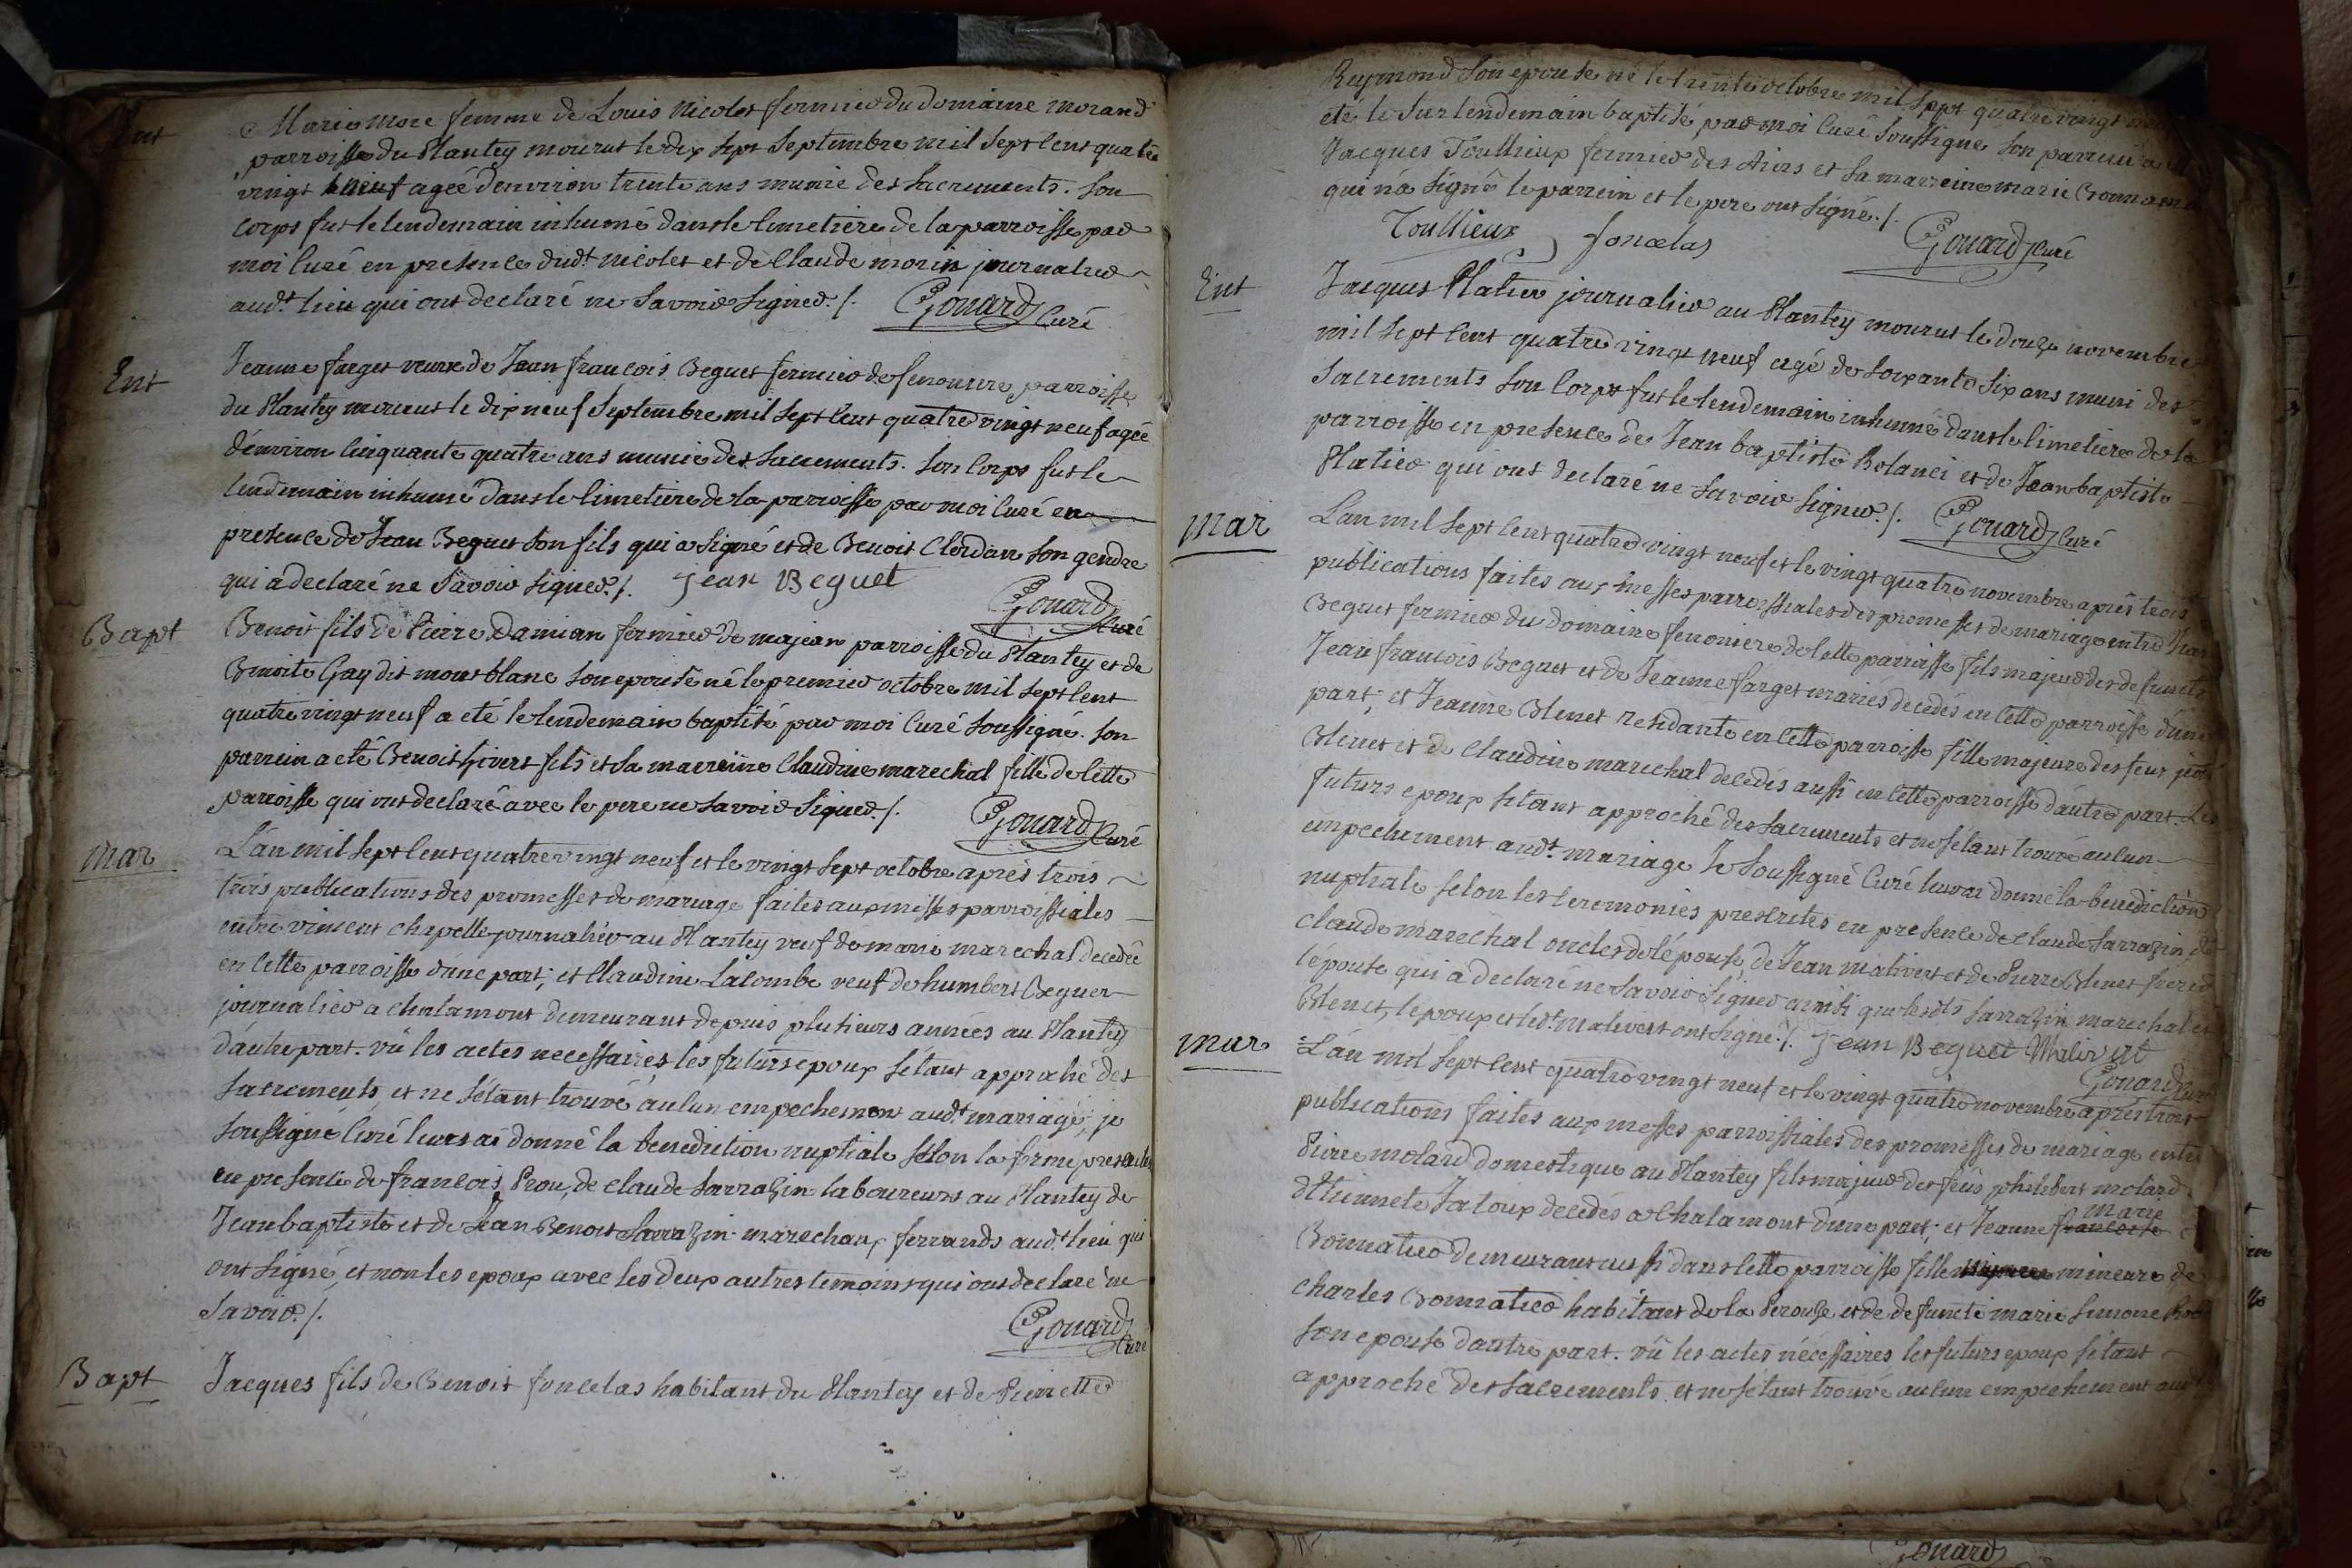 Ent
Marie more femme de Louis Nicolet fermier du domaine morand
parroisse du Plantey mourut le dix sept Septembre mil sept cent quatre
vingt neuf agée d'environ trente ans munie des sacrements. Son
corps fut le lendemain inhumé dans le cimetiere de la parroisse par
moi curé en presence dudt nicolet et de Claude morin journalier
audt lieu qui ont declaré ne savoir signer ./. Gouard Curé
Ent
Jeanne farget veuve de Jean françois Beguet fermier de fenouiere parroisse
du Plantey mourut le dix neuf Septembre mil sept cent quatre vingt neuf agée
d'environ cinquante quatre ans munie des sacrements. Son corps fut le
lendemain inhumé dans le cimetiere de la parroisse par moi curé en
presence de Jean Beguet son fils qui a signé et de Benoit Clordan son gendre
qui a declaré ne savoir signer ./. jean Beguet Gouard Curé
Bapt
Benoit fils de Pierre Damian fermier de majean parroisse du Plantey et de
Benoite Gay dit montblanc son epouse né le premier octobre mil sept cent
quatre vingt neuf a eté le lendemain baptisé par moi curé soussigné. Son
parrein a eté Benoit hivert fils et sa marreine Claudine marechal fille de cette
parroisse qui ont declaré avec le pere ne savoir signer ./. Gouard Curé
mar
L'an mil sept cent quatre vingt neuf et le vingt sept octobre après trois
trois publications des promesses de mariage faites aux messes parroissiales
entre vincent chapelle journalier au Plantey veuf de marie marechal decedée
en cette parroisse d'une part; et Claudine Lacombe veuf de humbert Beguet
journalier a chalamont demeurant depuis plusieurs années au Plantey
d'autre part. vû les actes necessaires les futurs epoux s'etant approché des
sacrements et ne s'étant trouvé aucun empechement audt mariage, je
soussigné curé leurs ai donné la benediction nuptiale selon la forme prescrite
en presence de françois Prou, de claude Sarrazin laboureurs au Plantey de
Jean baptiste et de Jean Benoit Sarrazin marechaux ferrands audt lieu qui
ont signé, et non les epoux avec les deux autres temoins qui ont declaré ne
savoir ./. Gouard Curé
Bapt
Jacques fils de Benoit foncelas habitant du Plantey et de Pierrette
Reymond son epouse né le trente octobre mil sept quatre vingt
eté le surlendemain baptisé par moi curé soussigné son parrein a
Jacques Toullieux fermier des Airs et sa marreine marie
qui n'a signé le parrein et le pere ont signé ./.
Toullieux foncelas Gouard Curé
Ent
Jacques Platier journalier au Plantey mourut le douze novembre
mil sept cent quatre vingt neuf agé de soixante six ans muni des
sacrements son corps fut le lendemain inhumé dans le cimetiere de la
parroisse en presence de Jean baptiste Bolanci et de Jean baptiste
Platier qui ont declaré ne savoir signer ./. Gouard Curé
mar
L'an mil sept cent quatre vingt neuf et le vingt quatre novembre après trois
publications faites aux messes parroissiales des promesses de mariage entre
Beguet fermier du domaine fenoniere de cette parroisse fils majeur des defuncts
Jean françois Beguet et de Jeanne farget mariés decedés en cette parroisse d'une
part; et Jeanne Blenet residante en cette parroisse fille majeure des feus
Blenet et de Claudine marechal decedés aussi en cette parroisse d'autre part. Les
futurs epoux s'etant approché des sacrements et ne s'étant trouvé aucun
empechement audt mariage Je soussigné curé leurs ai donné la benediction
nuptiale selon les ceremonies prescrites en presence de claude sarrazin de
claude marechal oncles de l'épouse, de Jean malivert et de Pierre Blenet frere de
l'épouse qui a declaré ne savoir signer ainsi que lesdts sarrazin marechal et
Blenet, l'epoux et ledt malivert ont signé ./. jean Beguet Malivert
Gouard Curé
mar
L'an mil sept cent quatre vingt neuf et le vingt quatre novembre après trois
publications faites aux messes parroissiales des promesses de mariage entre
Pierre molard domestique au Plantey fils majeur des feus philibert molard
d'Etiennete Jatoux decedés a Chalamont d'une part; et Jeanne francoise marie
Bonnatier demeurant aussi dans cette parroisse fille mineure de
charles Bonnatier habitant de la Perouze et de defuncte marie simone
son epouse d'autre part. vû les actes nécéssaires les futurs epoux s'étant
approché des sacrements et ne s'étant trouvé aucun empechement audt
Gouard